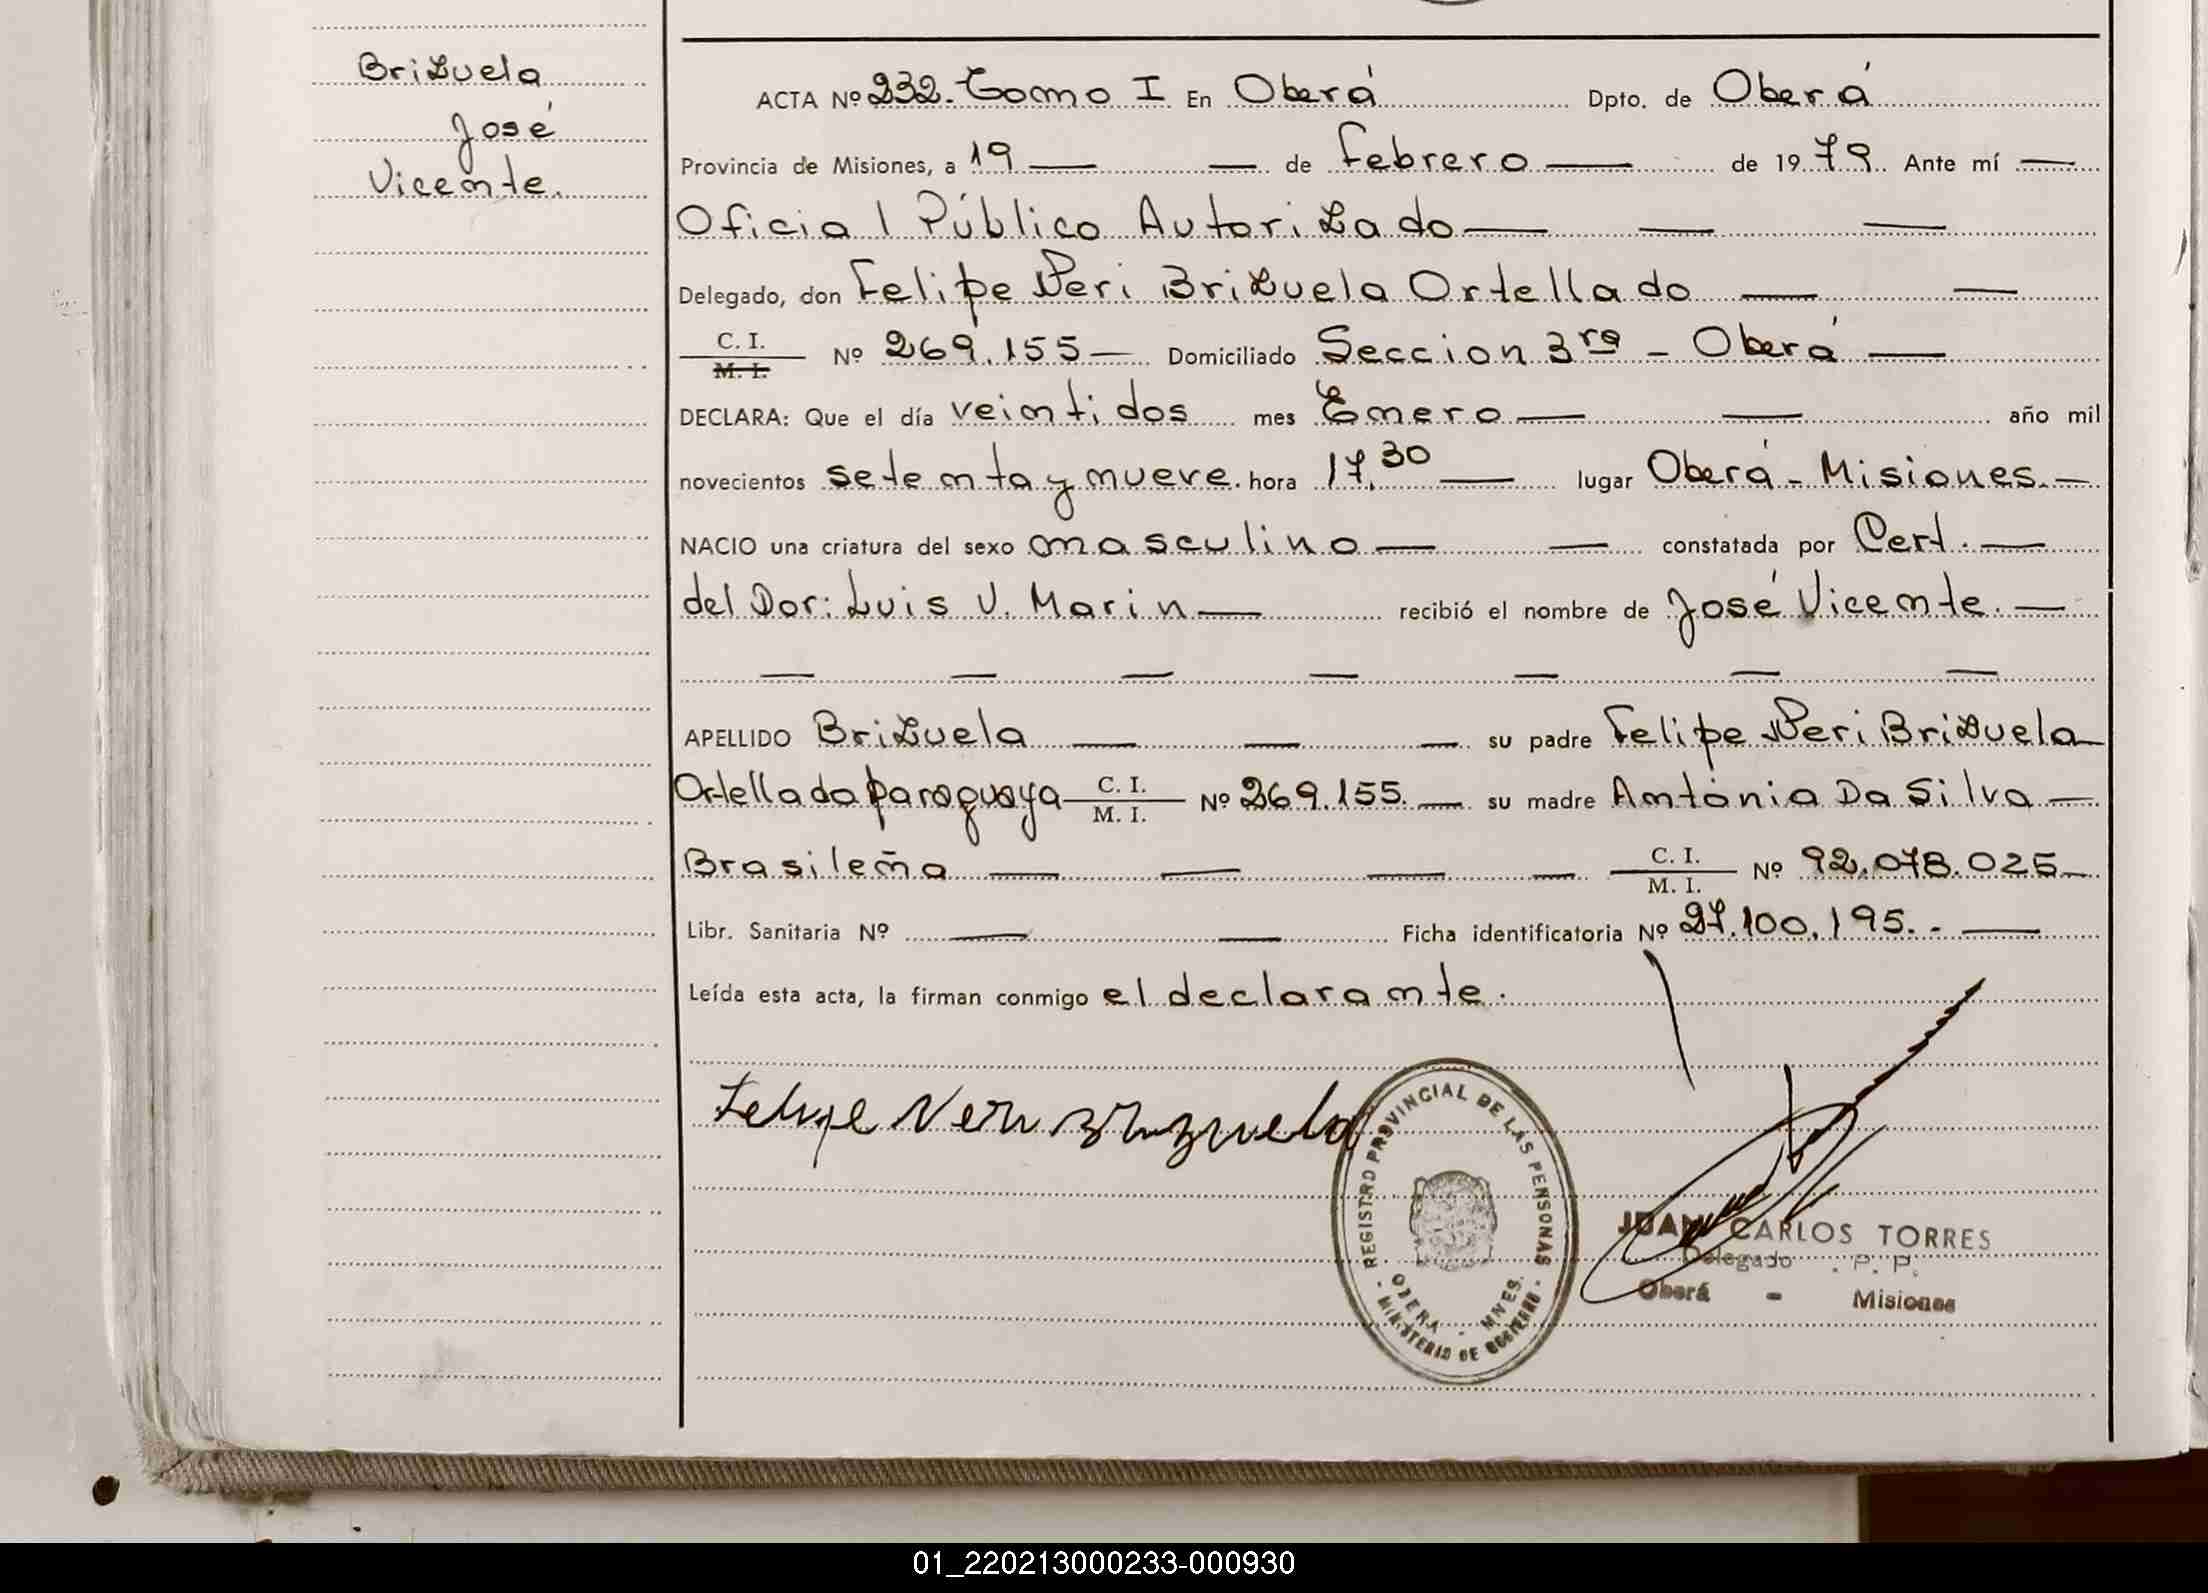 Brizuela
José
Vicente.
ACTA Nº 232. Tomo I En Oberá Dpto. de Oberá
Provincia de Misiones, a 19 — — de Febrero — de 1979. Ante mí —
Oficial Público Autorizado — — —
Delegado, don Felipe Neri Brizuela Ortellado — —
C. I.
M. I. Nº 269.155 — Domiciliado Seccion 3ra - Oberá —
DECLARA: Que el día veintidos mes Enero — — año mil
novecientos setenta y nueve. hora 17.30 — lugar Oberá - Misiones. —
NACIO una criatura del sexo masculino — — constatada por Cert. —
del Dor: Luis V. Marin — recibió el nombre de José Vicente. —
— — — — — — —
APELLIDO Brizuela — — — su padre Felipe Neri Brizuela
Ortellado paraguaya — C. I. / M. I. Nº 269.155. — su madre Antónia Da Silva —
Brasileña — — — — C. I. / M. I. Nº 92.078.025 —
Libr. Sanitaria Nº — — Ficha identificatoria Nº 27.100.195. - —
Leída esta acta, la firman conmigo el declarante.
Felipe Neri Brizuela
REGISTRO PROVINCIAL DE LAS PERSONAS
OBERA - MNES.
- MINISTERIO DE GOBIERNO -
JUAN CARLOS TORRES
Delegado . P. P.
Oberá - Misiones
01_220213000233-000930